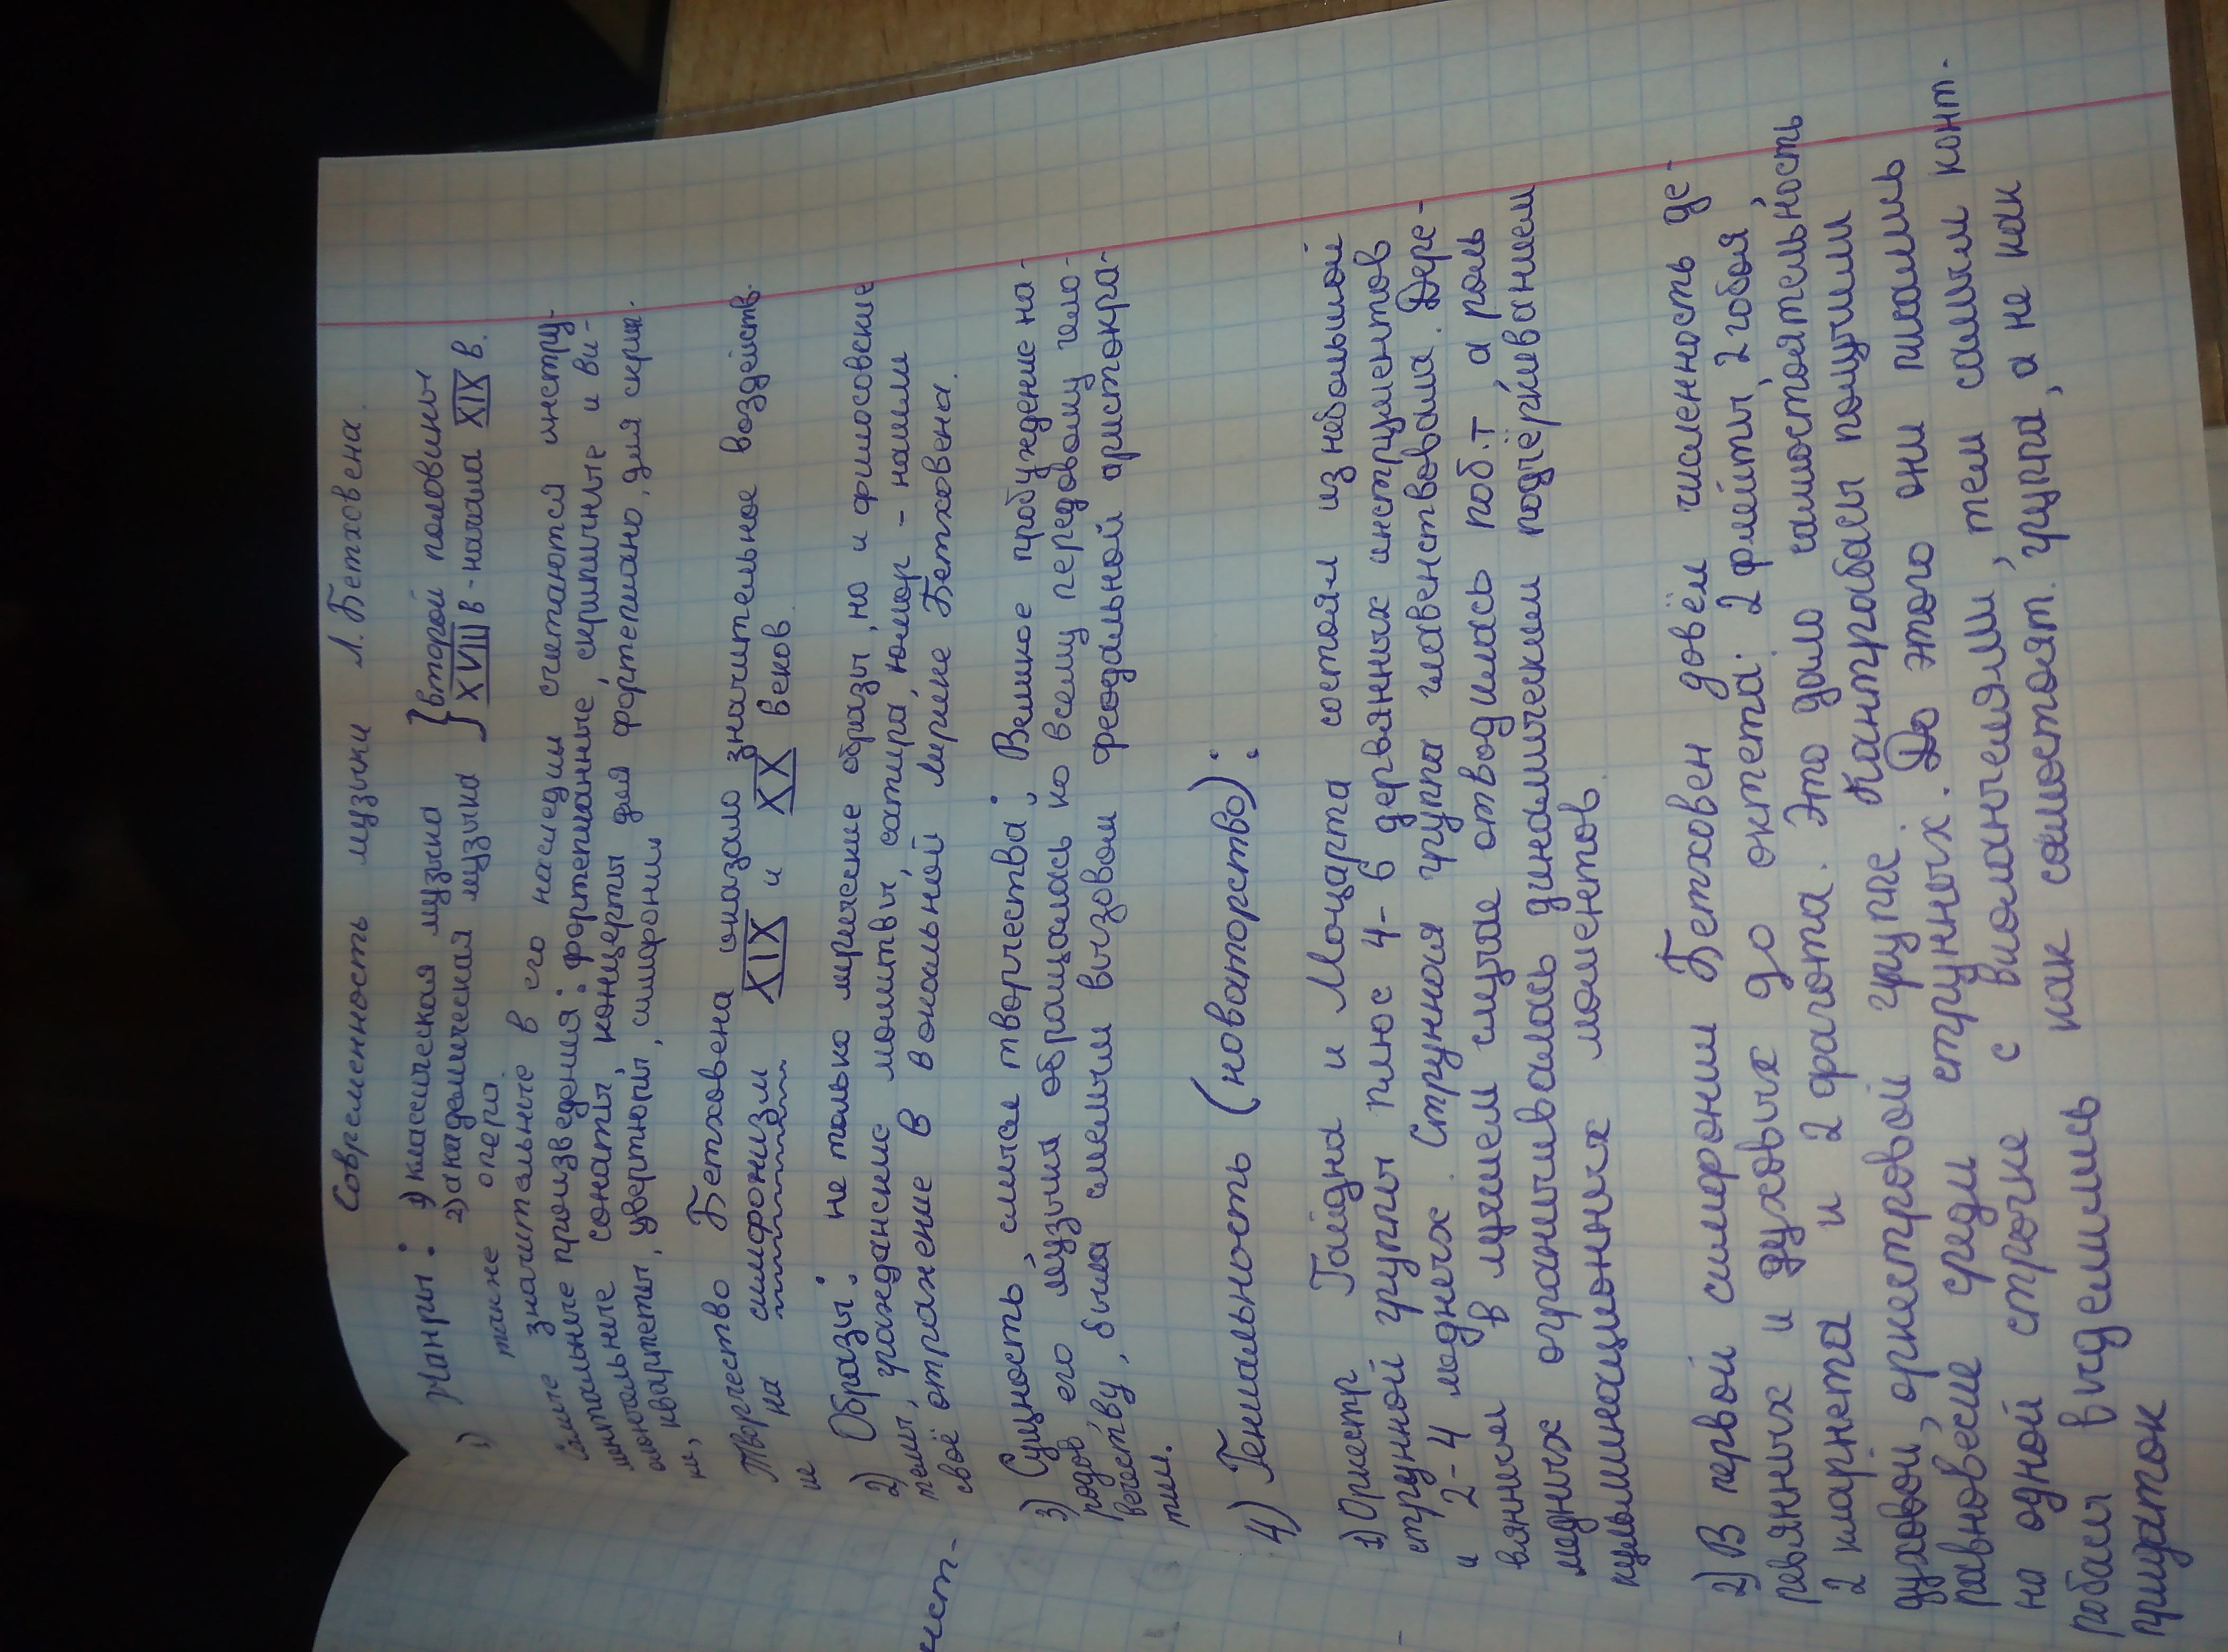 Современность музыки Л. Бетховена.
1) Жанры: 1) классическая музыка } второй половины
2) академическая музыка } XVIII в - начала XIX в.
также опера.
Самые значительные в его наследии считаются инстру-
ментальные произведения: фортепианные, скрипичные и ви-
олончельные сонаты, концерты для фортепиано, для скрип.
ки, квартеты, увертюры, симфонии
Творчество Бетховена оказало значительное воздейств.
ие на симфонизм XIX и XX веков.
2) Образы: не только лирические образы, но и философские
темы, гражданские молитвы, сатира, юмор - нашли
своё отражение в вокальной лирике Бетховена.
3) Сущность, смысл творчества: Великое пробуждение на-
родов его музыка обращалась ко всему передовому чело-
вечеству, была смелым вызовом феодальной аристокра-
тии.
4) Гениальность (новаторство):
1) Оркестр Гайдна и Моцарта состоял из небольшой
струнной группы плюс 4-6 деревянных инструментов
и 2-4 медных. Струнная группа главенствовала. Дере-
вянным в лучшем случае отводилась поб.т, а роль
медных ограничивалась динамическим подчёркиванием
кульминационных моментов.
2) В первой симфонии Бетховен довёл численность де-
ревянных и духовых до октета: 2 флейты, 2 гобоя,
2 кларнета и 2 фагота. Это дало самостоятельность
духовой, оркестровой группе. Контрабасы получили
равновесие среди струнных. До этого они писались
на одной строчке с виолончелями, тем самым конт.
робасы выделились как самостоят. группа, а не как
придаток
нист-